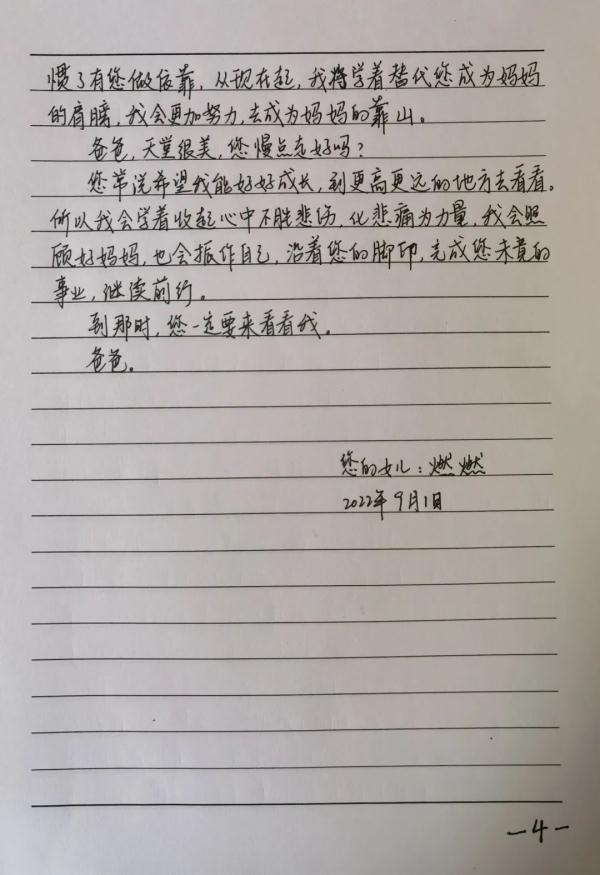 惯了有您做依靠，从现在起，我将学着替代您成为妈妈
的肩膀，我会更加努力，去成为妈妈的靠山。
爸爸，天堂很美，您慢点走好吗？
您常说希望我能好好成长，到更高更远的地方去看看。
所以我会学着收起心中不胜悲伤，化悲痛为力量，我会照
顾好妈妈，也会振作自己，沿着您的脚印，完成您未竟的
事业，继续前行。
到那时，您一定要来看看我。
爸爸。
您的女儿：燃燃
2022年9月1日
-4-